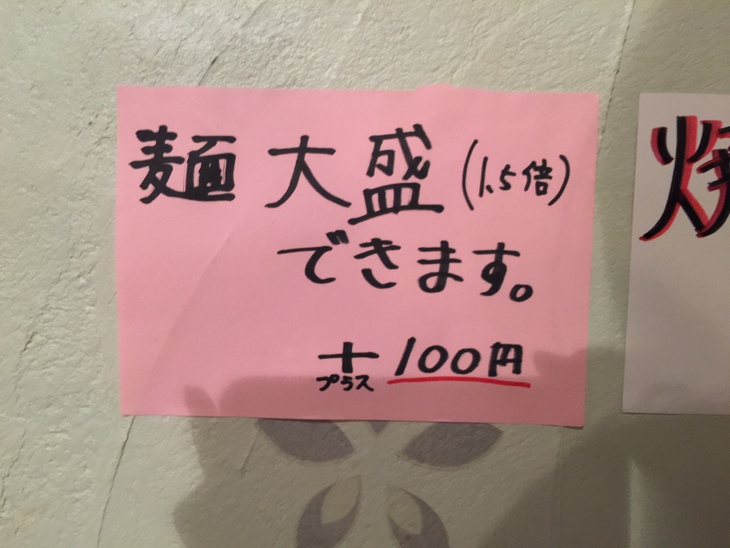 麺 大盛 (1.5倍)
できます。
+ 100円
プラス